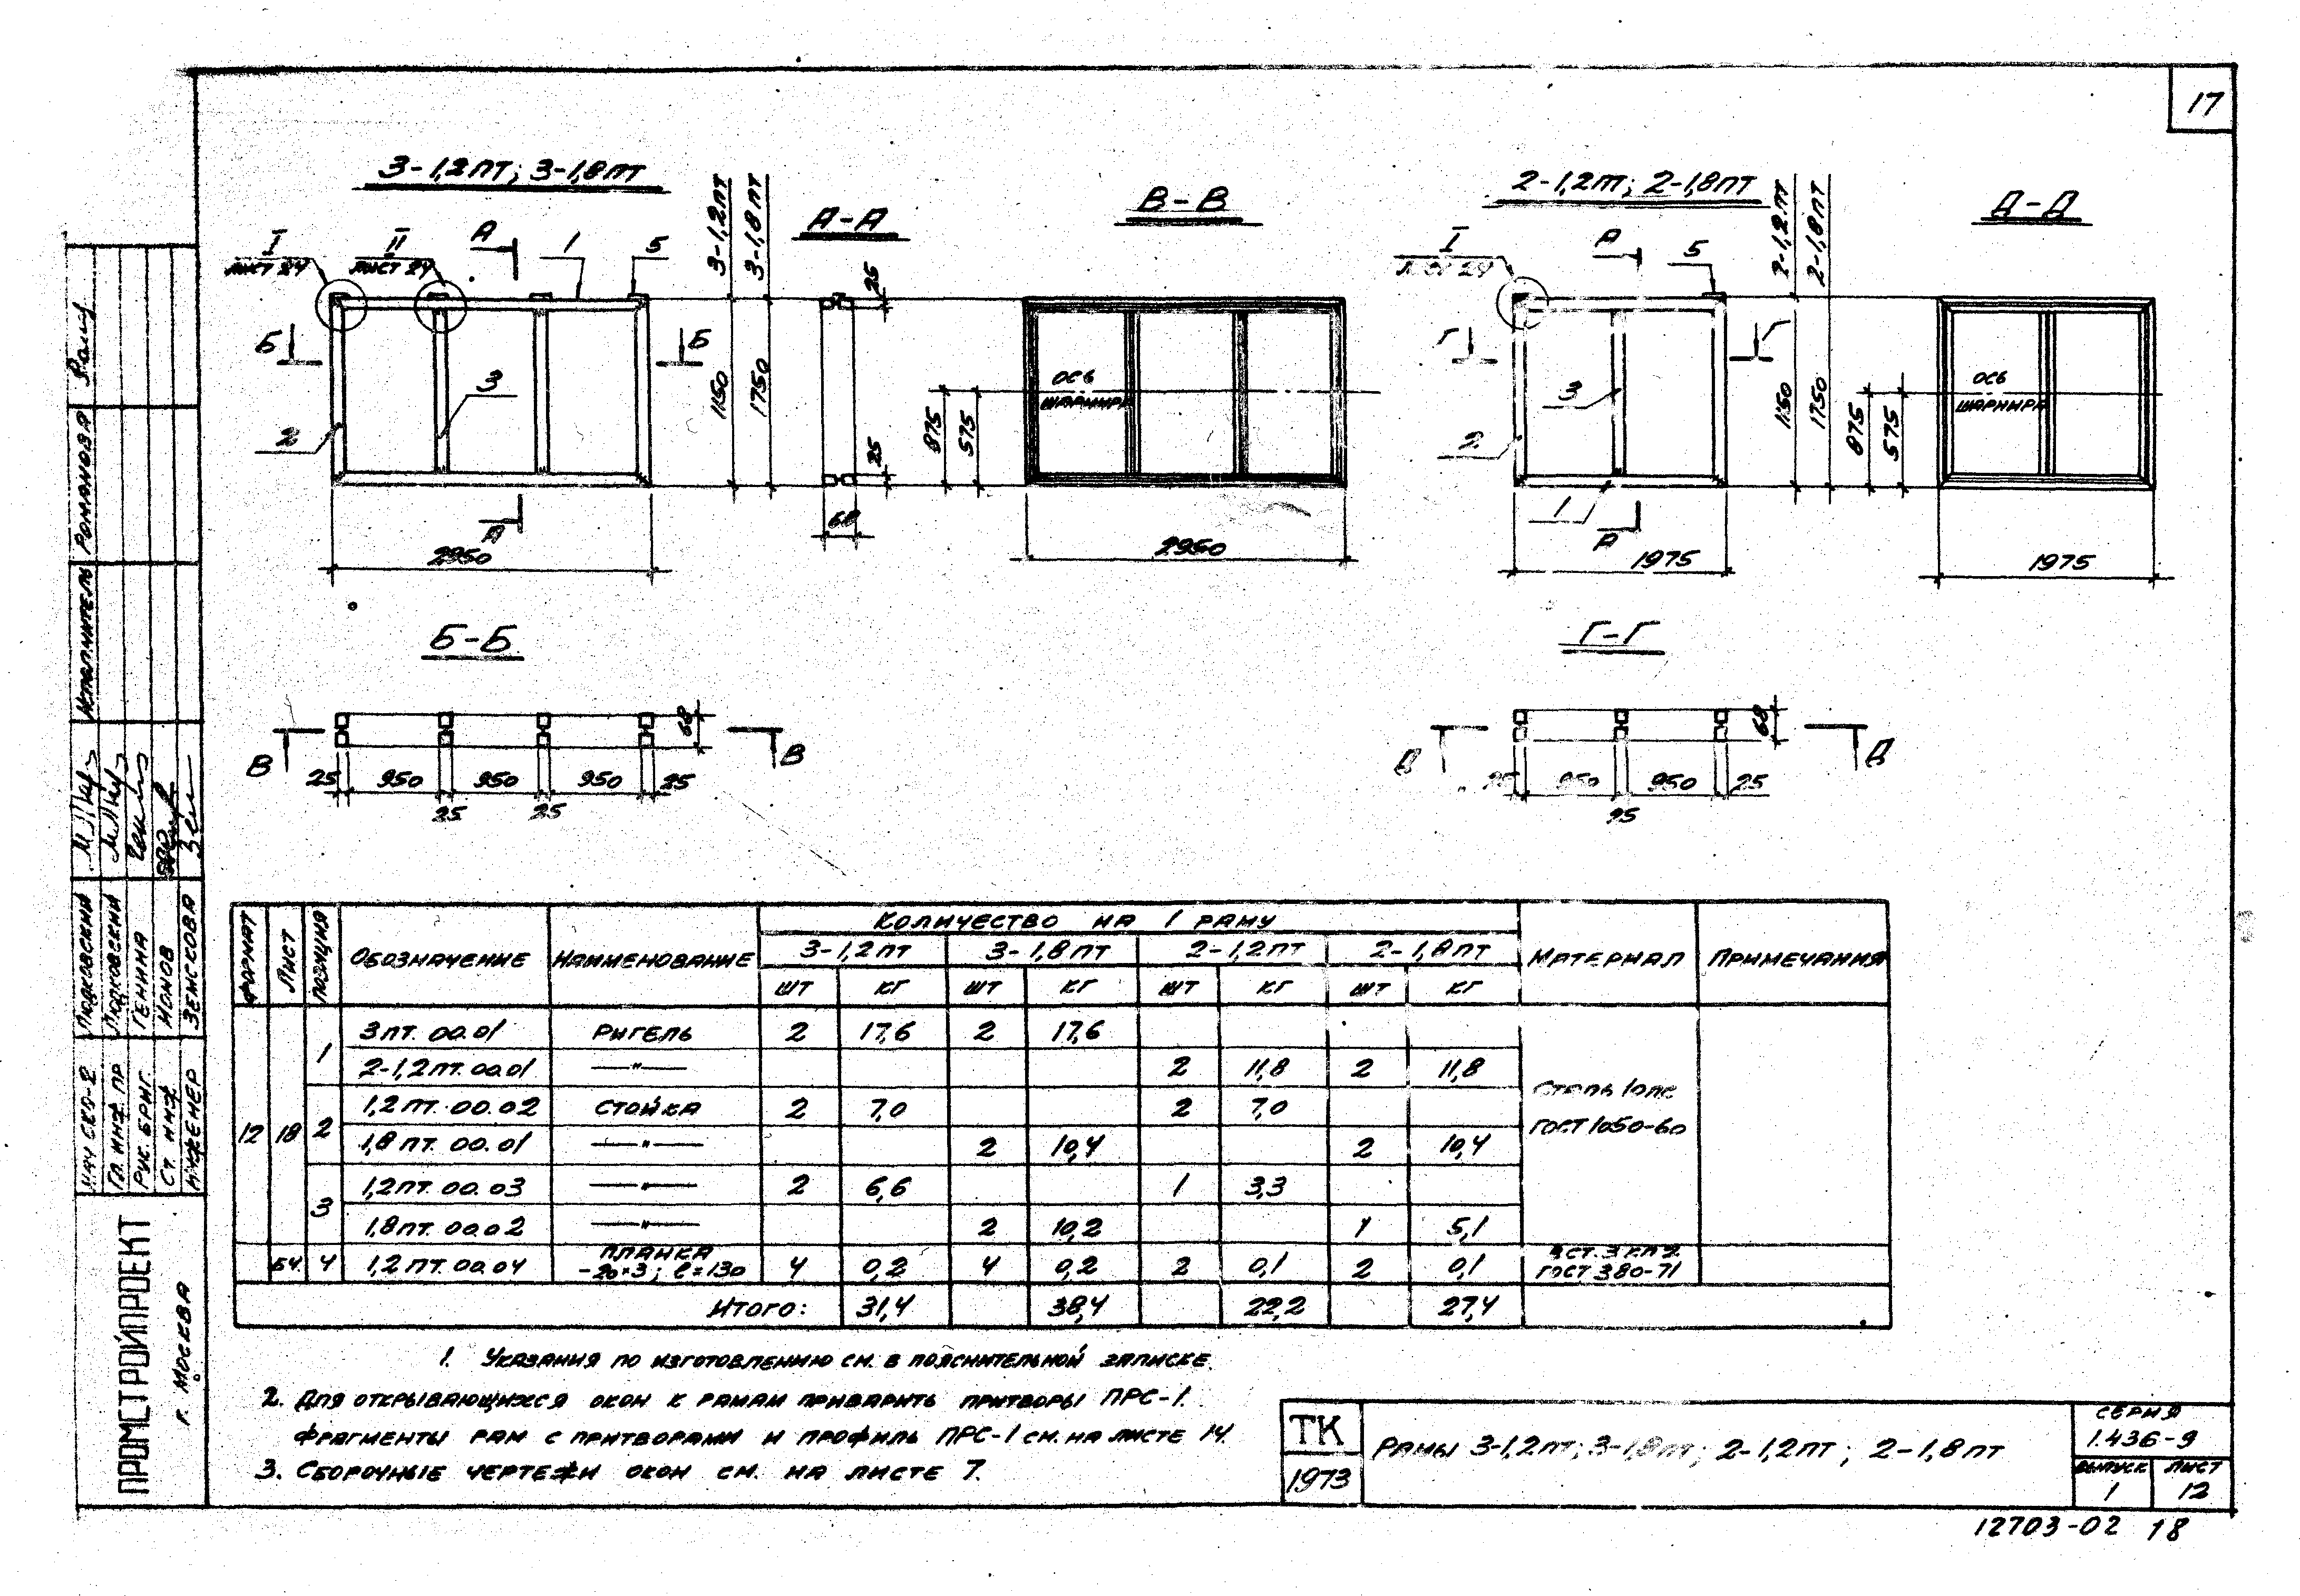 17
3-1,2ПТ; 3-1,8ПТ
I
ЛИСТ 24
II
ЛИСТ 24
А
1
5
Б
Б
3
2
А
2950
3-1,2ПТ
3-1,8ПТ
1150
1750
А-А
25
25
68
В-В
ОСЬ
ШАРНИРА
875
575
2950
2-1,2ПТ; 2-1,8ПТ
I
ЛИСТ 24
А
5
Г
Г
3
2
1
А
1975
2-1,2ПТ
2-1,8ПТ
1150
1750
Д-Д
875
575
ОСЬ
ШАРНИРА
1975
Б-Б
68
В
В
25 950 950 950 25
25 25
Г-Г
68
Д
Д
25 950 950 25
25
ФОРМАТ ЛИСТ ПОЗИЦИЯ ОБОЗНАЧЕНИЕ НАИМЕНОВАНИЕ КОЛИЧЕСТВО НА 1 РАМУ МАТЕРИАЛ ПРИМЕЧАНИЯ
3-1,2ПТ 3-1,8ПТ 2-1,2ПТ 2-1,8ПТ
ШТ КГ ШТ КГ ШТ КГ ШТ КГ
12 18
1 3ПТ.00.01 РИГЕЛЬ 2 17,6 2 17,6
2-1,2ПТ.00.01 —"— 2 11,8 2 11,8
СТАЛЬ 10ПС
ГОСТ 1050-60
2 1,2ПТ.00.02 СТОЙКА 2 7,0 2 7,0
1,8ПТ.00.01 —"— 2 10,4 2 10,4
3 1,2ПТ.00.03 —"— 2 6,6 1 3,3
1,8ПТ.00.02 —"— 2 10,2 1 5,1
БЧ 4 1,2ПТ.00.04 ПЛАНКА
-20×3; ℓ=130 4 0,2 4 0,2 2 0,1 2 0,1
ГОСТ 380-71
ИТОГО: 31,4 38,4 22,2 27,4
1. УКАЗАНИЯ ПО ИЗГОТОВЛЕНИЮ СМ. В ПОЯСНИТЕЛЬНОЙ ЗАПИСКЕ.
2. ДЛЯ ОТКРЫВАЮЩИХСЯ ОКОН К РАМАМ ПРИВАРИТЬ ПРИТВОРЫ ПРС-1.
ФРАГМЕНТЫ РАМ С ПРИТВОРАМИ И ПРОФИЛЬ ПРС-1 СМ. НА ЛИСТЕ 14.
3. СБОРОЧНЫЕ ЧЕРТЕЖИ ОКОН СМ. НА ЛИСТЕ 7.
ТК
1973
РАМЫ 3-1,2ПТ; 3-1,8ПТ; 2-1,2ПТ; 2-1,8ПТ
СЕРИЯ
1.436-9
ВЫПУСК ЛИСТ
1 12
12703-02 18
ИСПОЛНИТЕЛЬ РОМАНОВА
НАЧ СКО-2 ЛЯДКОВСКИЙ
ГЛ. ИНЖ. ПР ЛЯДКОВСКИЙ
РУК. БРИГ. ГЕНИНА
СТ. ИНЖ ИОНОВ
ИНЖЕНЕР ЗЕМСКОВА
ПРОМСТРОЙПРОЕКТ
Г. МОСКВА